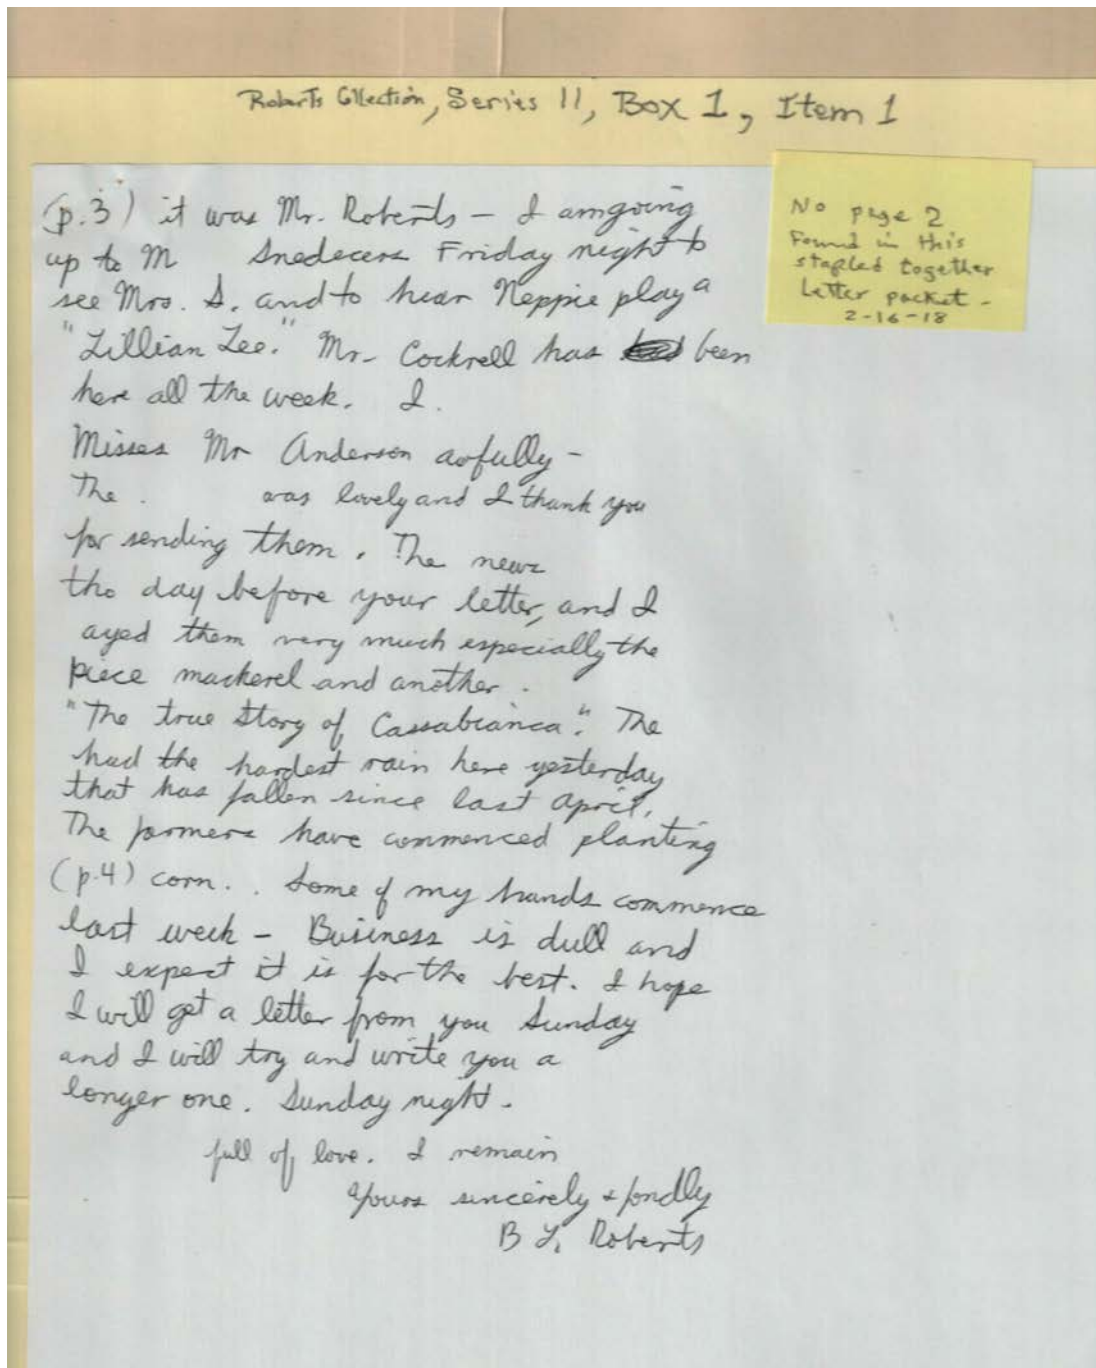 Roberts Collection, Series II, Box 1, Item 1
No page 2
Found in this
stapled together
Letter packet -
2-16-18
(p.3) it was Mr. Roberts - I am going
up to M Snedecers Friday night to
see Mrs. S. and to hear Neppie play a
"Lillian Lee." Mr- Cockrell has been
here all the week. I.
Misses Mr Anderson aofully -
The . was lovely and I thank you
for sending them. The news
the day before your letter, and I
ayed them very much especially the
piece mackerel and another .
"The true Story of Cassabianca". The
had the hardest rain here yesterday
that has fallen since last April.
The farmers have commenced planting
(p.4) corn. . Some of my hands commence
last week - Business is dull and
I expect it is for the best. I hope
I will get a letter from you Sunday
and I will try and write you a
longer one. Sunday night.
full of love. I remain
Yours sincerely & fondly
B L. Roberts